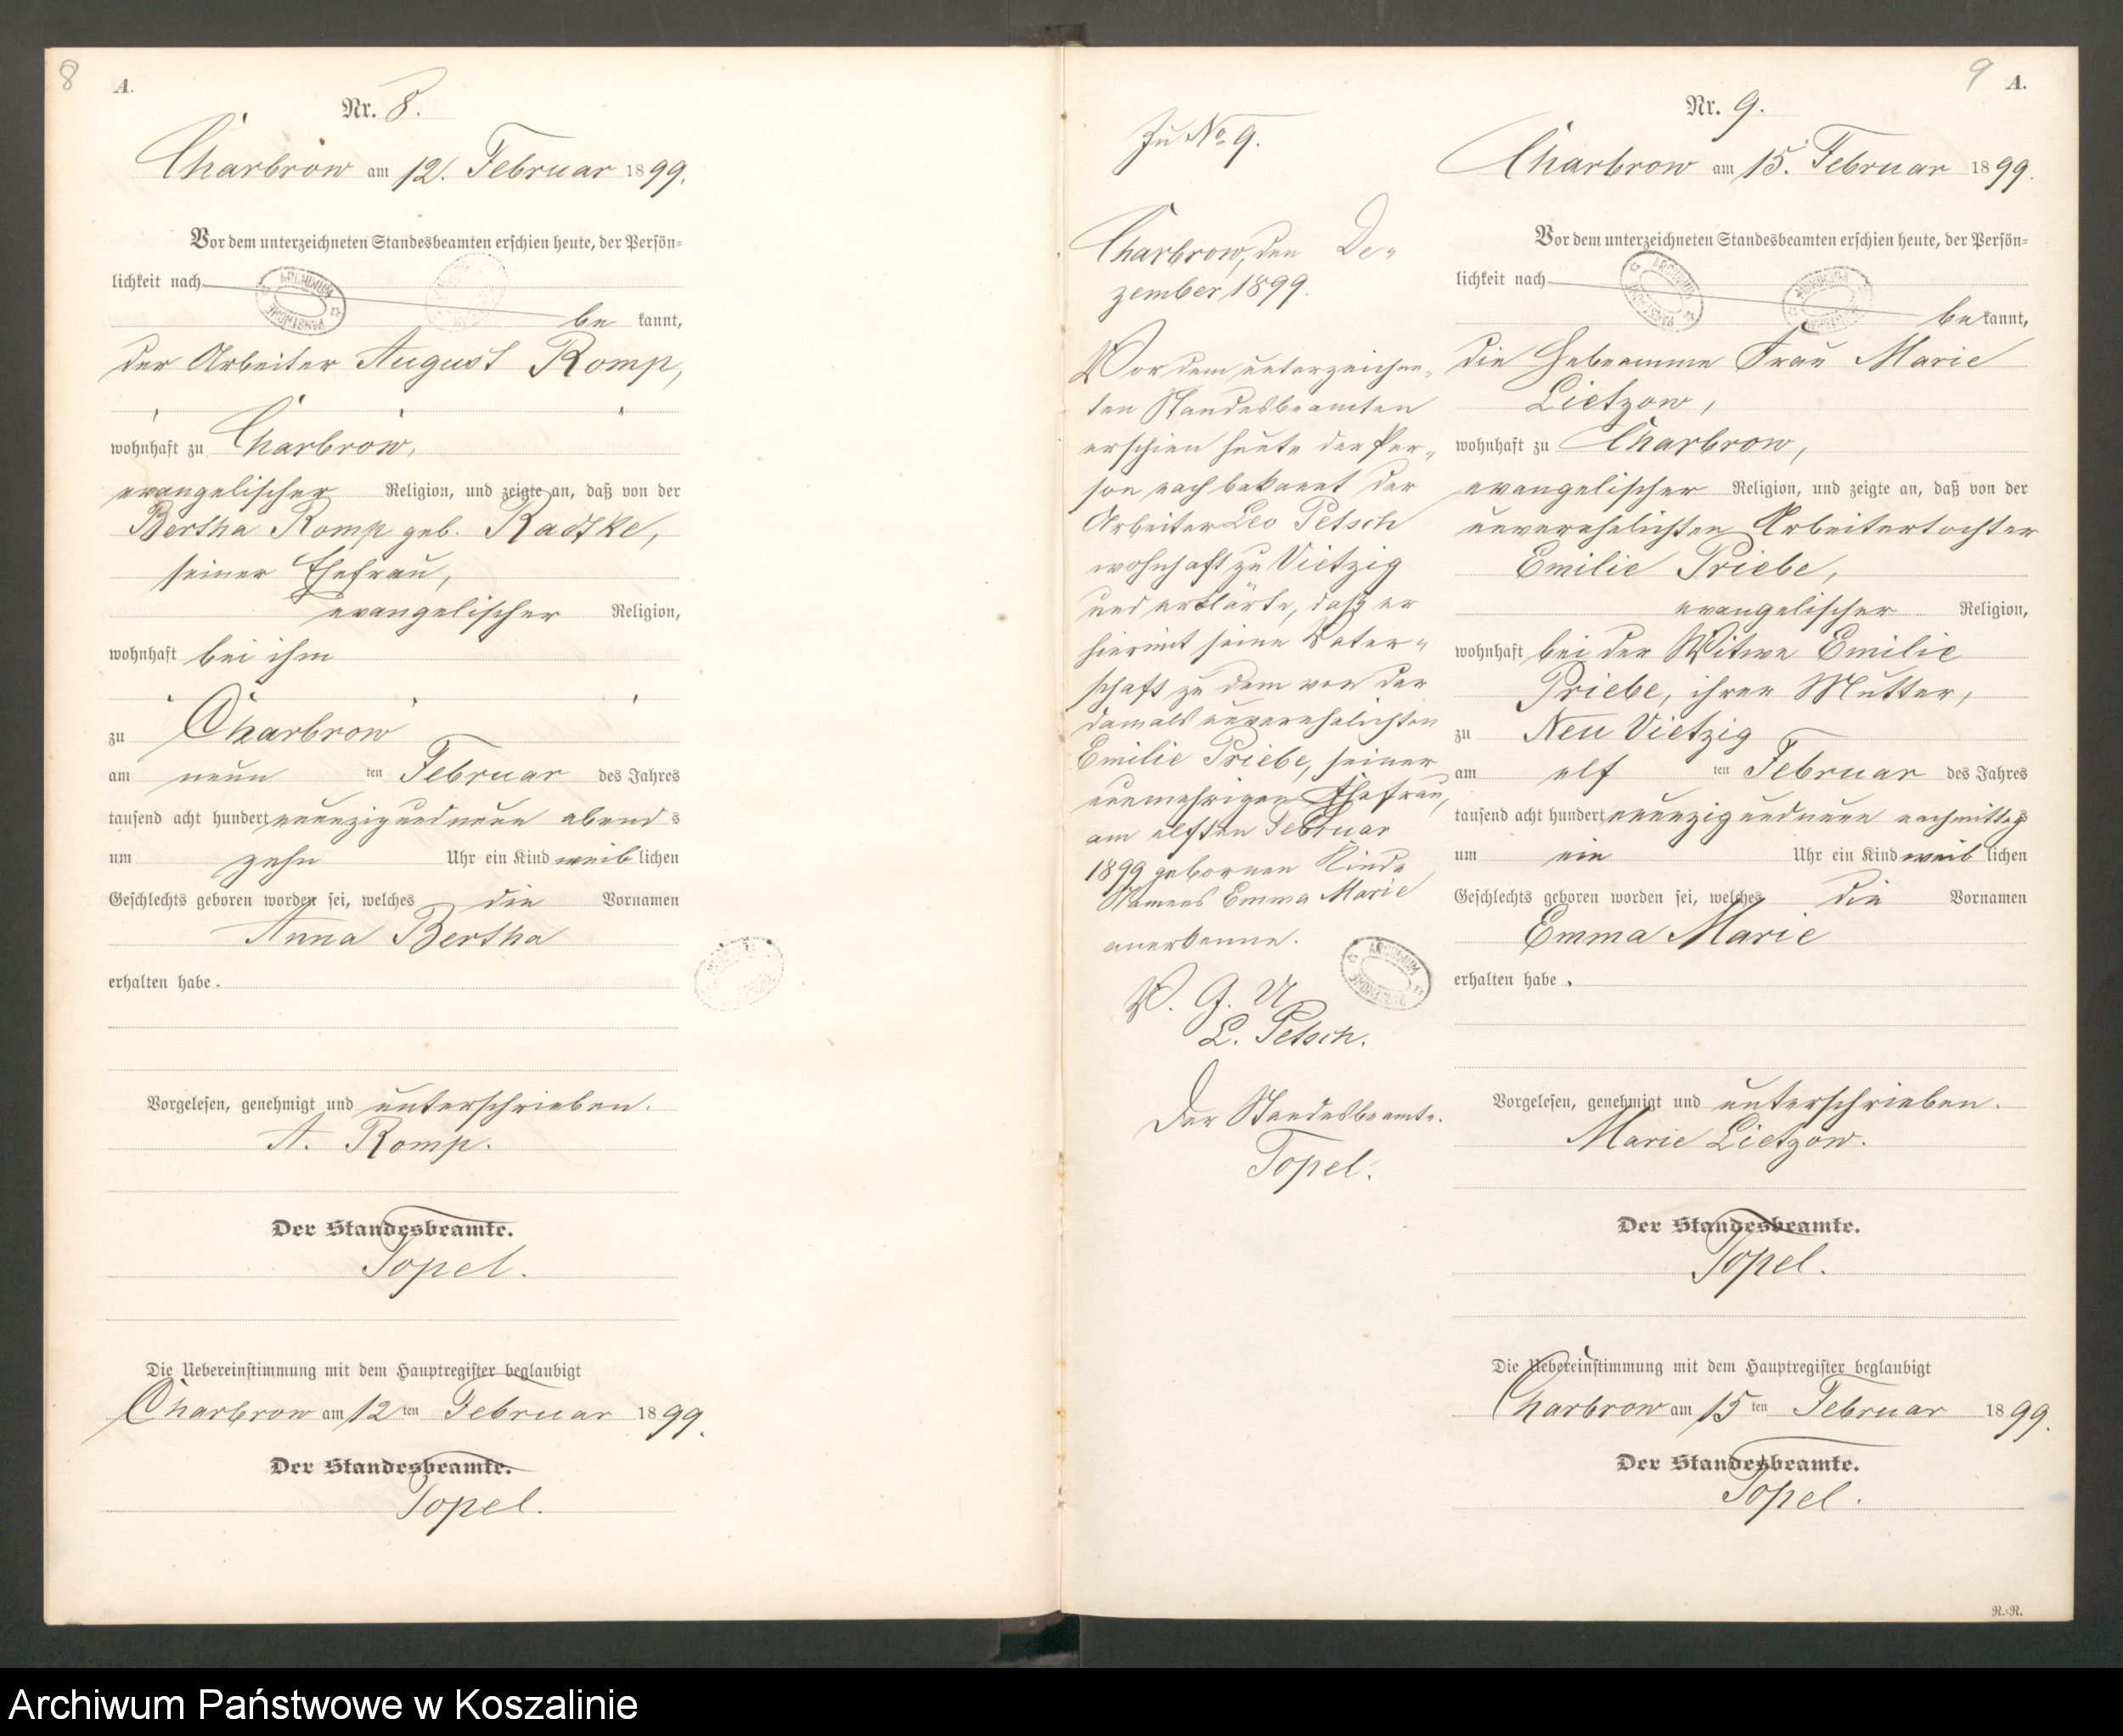 8
A.
Nr. 8.
Charbrow am 12. Februar 1899.
Vor dem unterzeichneten Standesbeamten erschien heute, der Persön-
lichkeit nach
be kannt,
der Arbeiter August Romp,
wohnhaft zu Charbrow,
evangelischer Religion, und zeigte an, daß von der
Bertha Romp geb. Radtke,
seiner Ehefrau,
evangelischer Religion,
wohnhaft bei ihm
zu Charbrow
am neun ten Februar des Jahres
tausend acht hundert neunzig und neun abend s
um zehn Uhr ein Kind weib lichen
Geschlechts geboren worden sei, welches die Vornamen
Anna Bertha
erhalten habe.
Vorgelesen, genehmigt und unterschrieben.
A. Romp.
Der Standesbeamte.
Topel.
Die Uebereinstimmung mit dem Hauptregister beglaubigt
Charbrow am 12 ten Februar 1899.
Der Standesbeamte.
Topel.
Zu No 9.
Charbrow, den De-
zember 1899.
Vor dem unterzeichne-
ten Standesbeamten
erschien heute der Per-
son nach bekannt der
Arbeiter Leo Petsch
wohnhaft zu Vietzig
und erklärte, daß er
hiermit seine Vater-
schaft zu dem von der
damals unverehelichten
Emilie Priebe, seiner
nunmehrigen Ehefrau,
am elften Februar
1899 gebornen Kinde
Namens Emma Marie
anerkenne.
V. G. U
L. Petsch.
Der Standesbeamte.
Topel.
9
A.
Nr. 9.
Charbrow am 15. Februar 1899.
Vor dem unterzeichneten Standesbeamten erschien heute, der Persön-
lichkeit nach
be kannt,
die Hebeamme Frau Marie
Lietzow,
wohnhaft zu Charbrow,
evangelischer Religion, und zeigte an, daß von der
unverehelichten Arbeitertochter
Emilie Priebe,
evangelischer Religion,
wohnhaft bei der Witwe Emilie
Priebe, ihrer Mutter,
zu Neu Vietzig
am elf ten Februar des Jahres
tausend acht hundert neunzig und neun nachmittags
um ein Uhr ein Kind weib lichen
Geschlechts geboren worden sei, welches die Vornamen
Emma Marie
erhalten habe.
Vorgelesen, genehmigt und unterschrieben.
Marie Lietzow.
Der Standesbeamte.
Topel.
Die Uebereinstimmung mit dem Hauptregister beglaubigt
Charbrow am 15 ten Februar 1899.
Der Standesbeamte.
Topel.
R.-R.
Archiwum Państwowe w Koszalinie